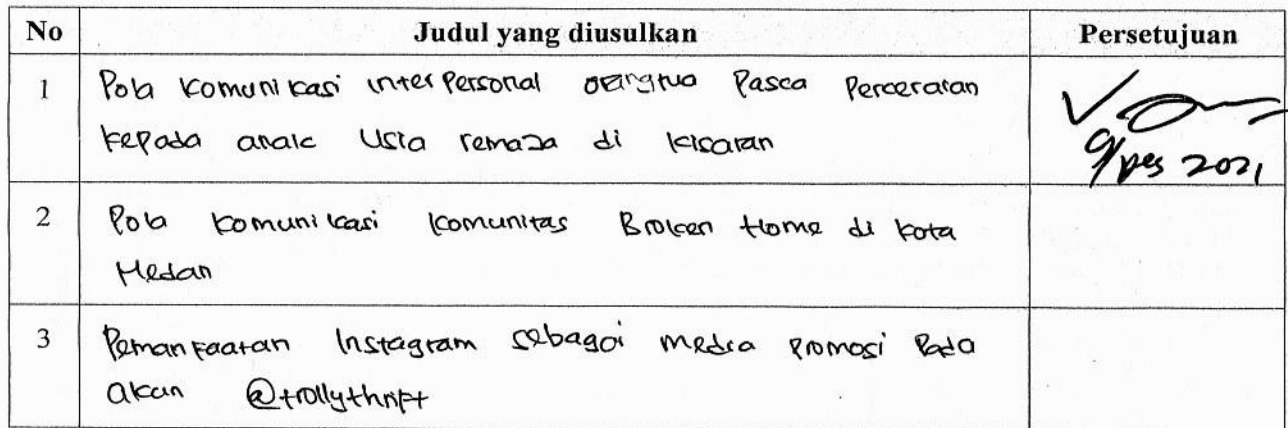 No Judul yang diusulkan Persetujuan
1 Pola Komunikasi interpersonal orangtua Pasca Perceraian
kepada anak Usia remaja di kisaran
9/Des 2021
2 Pola Komunikasi Komunitas Broken Home di Kota
Medan
3 Pemanfaatan Instagram sebagai media promosi Pada
akun @trollythrift